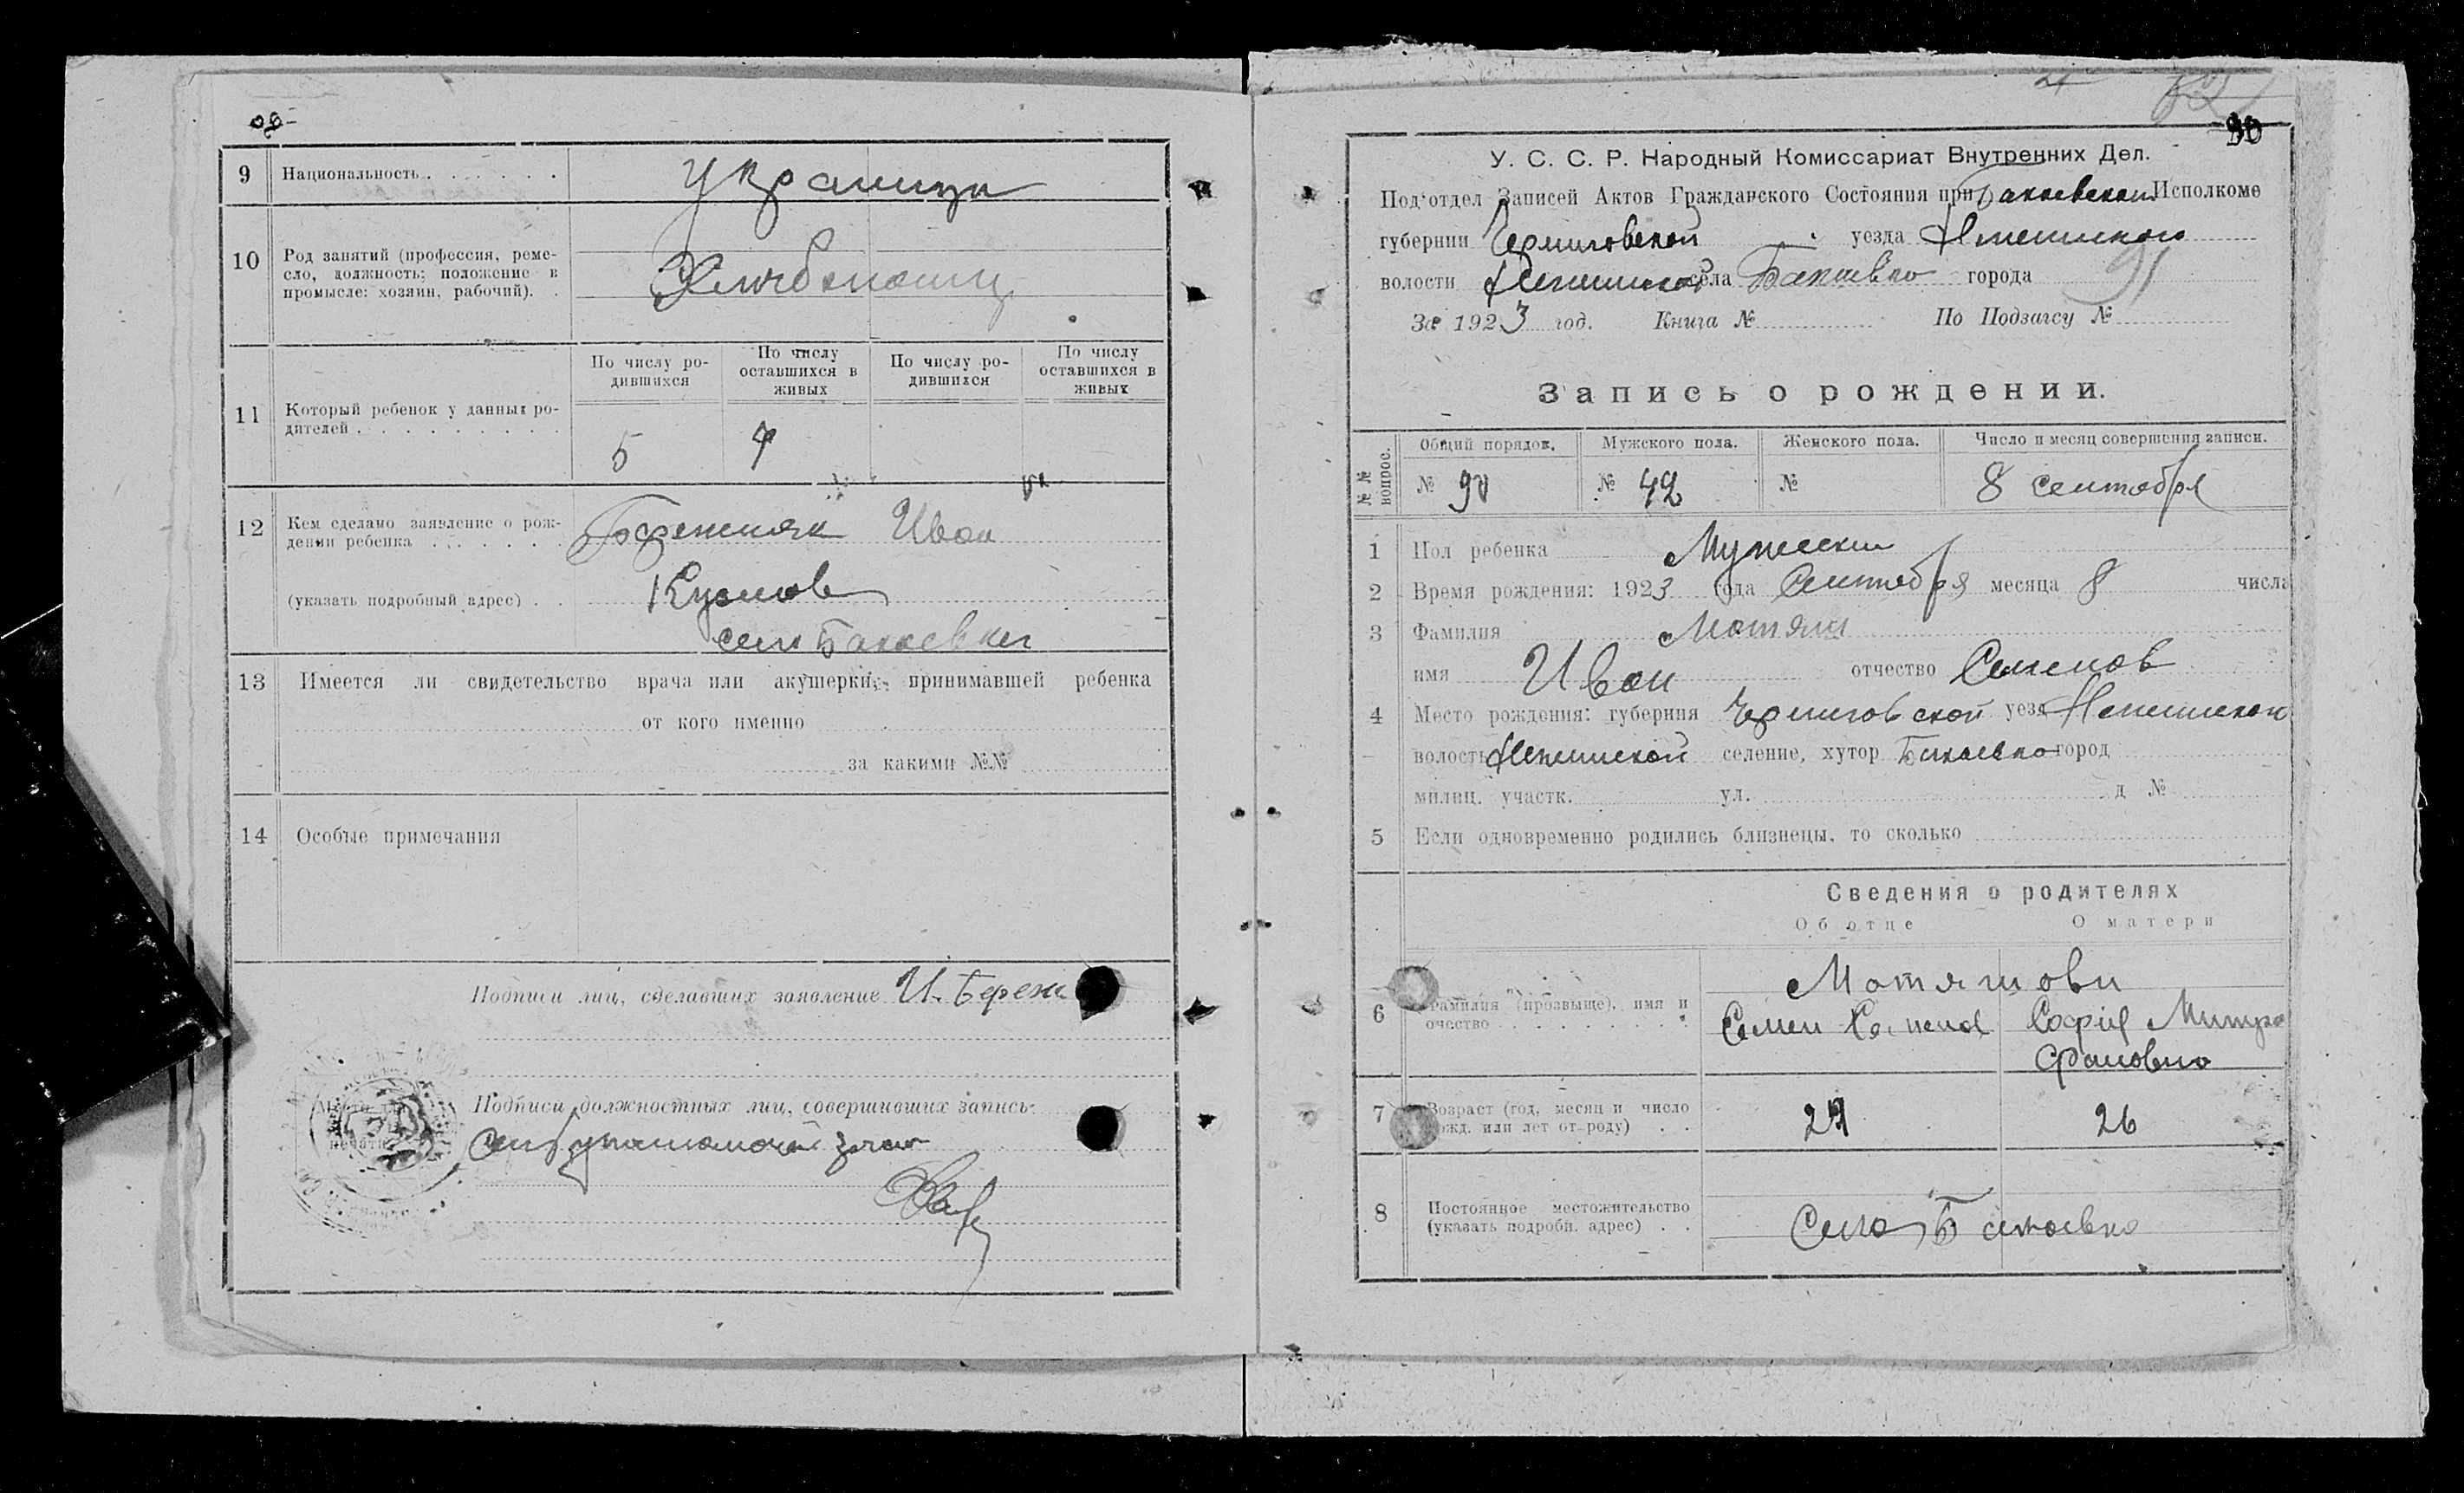 9 Национальность . . . . . . Украинци
10 Род занятий (профессия, реме-
сло, должность; положение в
промысле: хозяин, рабочий). . Хлибопашц
11 Который ребенок у данных ро-
дителей . . . . . . . . .
По числу ро-
дившихся
По числу
оставшихся в
живых
По числу ро-
дившихся
По числу
оставшихся в
живых
5 4
12 Кем сделано заявление о рож-
дении ребенка . . . . . . Бережняк Иван
(указать подробный адрес) . . Кузмов
село Бакаевки
13 Имеется ли свидетельство врача или акушерки, принимавшей ребенка
от кого именно
за какими №№
14 Особые примечания
Подписи лиц, сделавших заявление И. Береж
Подписи должностных лиц, совершивших запись
Место
печати
У. С. С. Р. Народный Комиссариат Внутренних Дел.
Под'отдел Записей Актов Гражданского Состояния при Бакаевском Исполкоме
губернии Черниговской уезда Нежинского
волости Нежинской села Бакаевка города
За 1923 год. Книга № По Подзагсу №
91
90
Запись о рождении.
№№ вопрос. Общий порядок. Мужского пола. Женского пола. Число и месяц совершения записи.
№ 90 № 42 № 8 сентября
1 Пол ребенка Мужески
2 Время рождения: 1923 года Сентября месяца 8 числа
3 Фамилия Мотяш
имя Иван отчество Семенов
4 Место рождения: губерния Черниговской уезд Нежинской
волость Нежинской селение, хутор Бакаевка город
милиц. участк. ул. д №
5 Если одновременно родились близнецы, то сколько
Сведения о родителях
Об отце О матери
6 Фамилия (прозвыще), имя и
очество . . . . . . . .
Мотяшови
Семен София Митро
фановно
7 Возраст (год, месяц и число
рожд. или лет от роду) . . 26
8 Постоянное местожительство
(указать подробн. адрес) . . Село Бакаевка